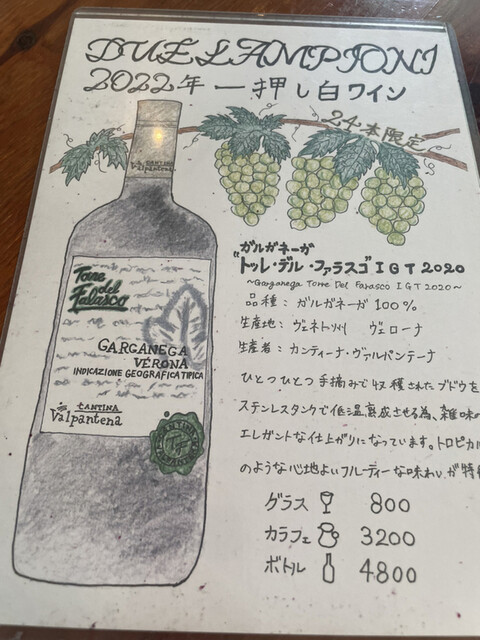 DUE LAMPIONI
2022年 一押し白ワイン
24本限定
CANTINA
Valpantena
Torre
del
Falasco
GARGANEGA
VERONA
INDICAZIONE GEOGRAFICA TIPICA
CANTINA
Valpantena
ガルガネーガ
"トッレ・デル・ファラスゴ" IGT 2020
~Garganega Torre Del Farasco IGT 2020~
品種：ガルガネーガ 100%
生産地：ヴェネト州 ヴェローナ
生産者：カンティーナ・ヴァルパンテーナ
ひとつひとつ手摘みで収穫されたブドウを
ステンレスタンクで低温熟成させる為、雑味が
エレガントな仕上がりになっています。トロピカル
のような心地よいフルーティーな味わいが特
グラス 800
カラフェ 3200
ボトル 4800